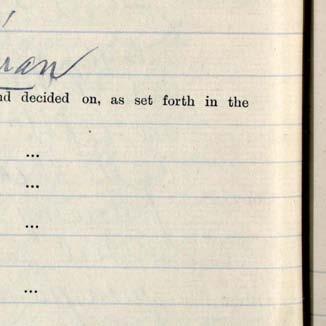 nd decided on, as set forth in the
...
...
...
...